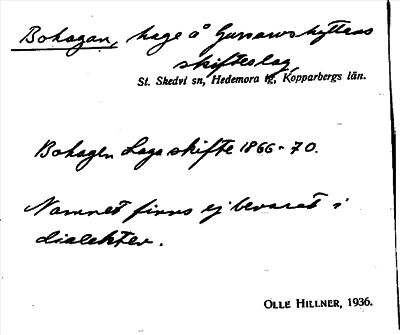 Bohagan, hage å Gussarvshyttans
skifteslag,
St. Skedvi sn, Hedemora tg, Kopparbergs län.
Bohagen Laga skifte 1866-70.
Namnet finns ej bevarat i
dialekten.
OLLE HILLNER, 1936.